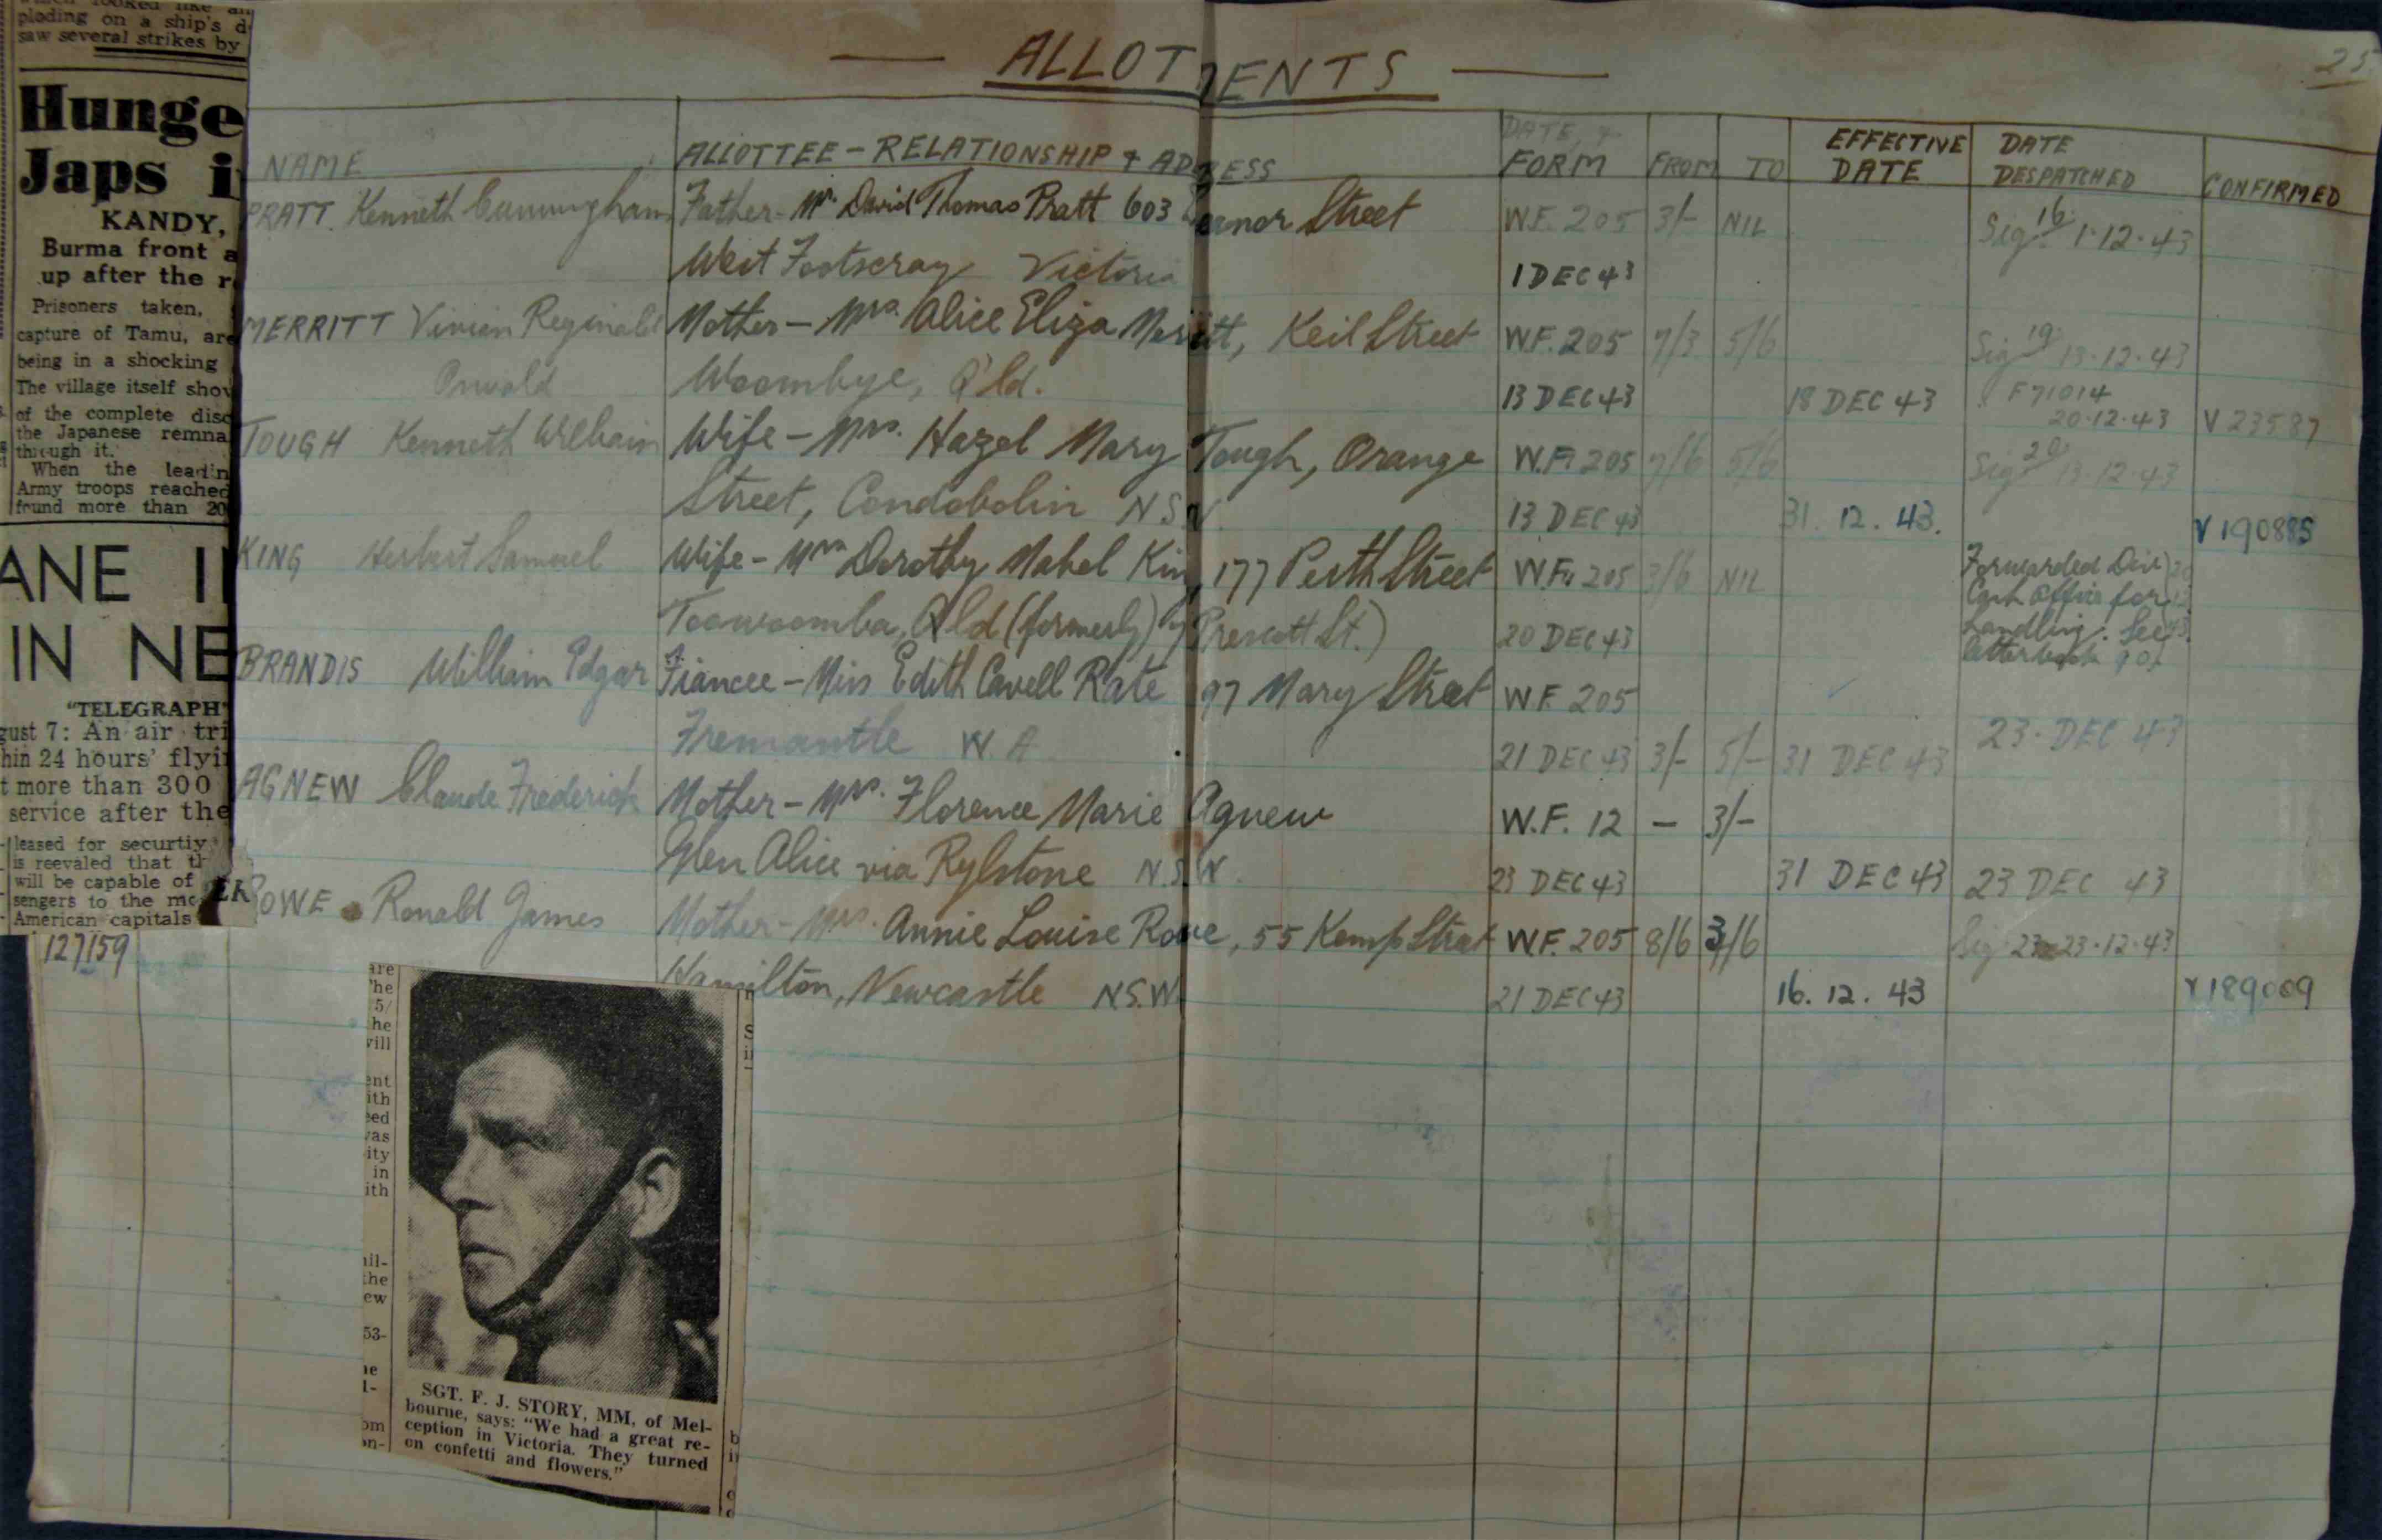 plading on a ship's d
saw several strikes by
Hunge
Japs i
KANDY,
Burma front a
up after the r
Prisoners taken,
capture of Tamu, are
being in a shocking
The village itself show
of the complete diso
the Japanese remna
through it.
When the leadin
Army troops reached
found more than 20
ANE I
IN NE
"TELEGRAPH"
gust 7: An air tri
hin 24 hours' flyi
t more than 300
service after the
leased for securtiy
is reevaled that th
will be capable of
sengers to the mo
American capitals
ER
127159
— ALLOTMENTS —
25
NAME ALLOTTEE - RELATIONSHIP & ADDRESS DATE & FORM FROM TO EFFECTIVE DATE DATE DESPATCHED CONFIRMED
PRATT. Kenneth Cunningham Father - Mr. David Thomas Pratt 603 Street W.F. 205 3/- NIL Sig 16 1.12.43
West Footscray Victoria 1 DEC 43
MERRITT Vivian Reginald Mother - Mrs. Alice Eliza Merritt, Keil Street W.F. 205 7/3 5/6 Sig 19 13.12.43
Oswald Woombye, Q'ld. 13 DEC 43 18 DEC 43 F71014 20.12.43 V 23587
TOUGH Kenneth William Wife - Mrs. Hazel Mary Tough, Orange W.F. 205 7/6 5/6 Sig 20 13.12.43
Street, Condobolin NSW. 13 DEC 43 31. 12. 43. V 190885
KING Herbert Samuel Wife - Mrs Dorothy Mabel King, 177 Perth Street W.F. 205 3/6 NIL Forwarded Div
Cash Office for
Toowoomba, Qld (formerly) Prescott St.) 20 DEC 43 handling. See
BRANDIS William Edgar Fiancee - Miss Edith Cavell Rate 97 Mary Street W.F. 205
Fremantle W.A 21 DEC 43 3/- 5/- 31 DEC 43 23. DEC 43
AGNEW Claude Frederick Mother - Mrs. Florence Marie Agnew W.F. 12 - 3/-
Glen Alice via Rylstone N.S.W. 23 DEC 43 31 DEC 43 23 DEC 43
ROWE Ronald James Mother - Mrs. Annie Louise Rowe, 55 Kemp Street W.F. 205 8/6 3/6 Sig 23 23.12.43
Hamilton, Newcastle N.S.W. 21 DEC 43 16. 12. 43 V 189009
are
he
5/
he
vill
ent
ith
eed
vas
ity
in
ith
nil-
the
ew
53-
ne
l-
om
on-
SGT. F. J. STORY, MM, of Mel-
bourne, says: "We had a great re-
ception in Victoria. They turned
on confetti and flowers."